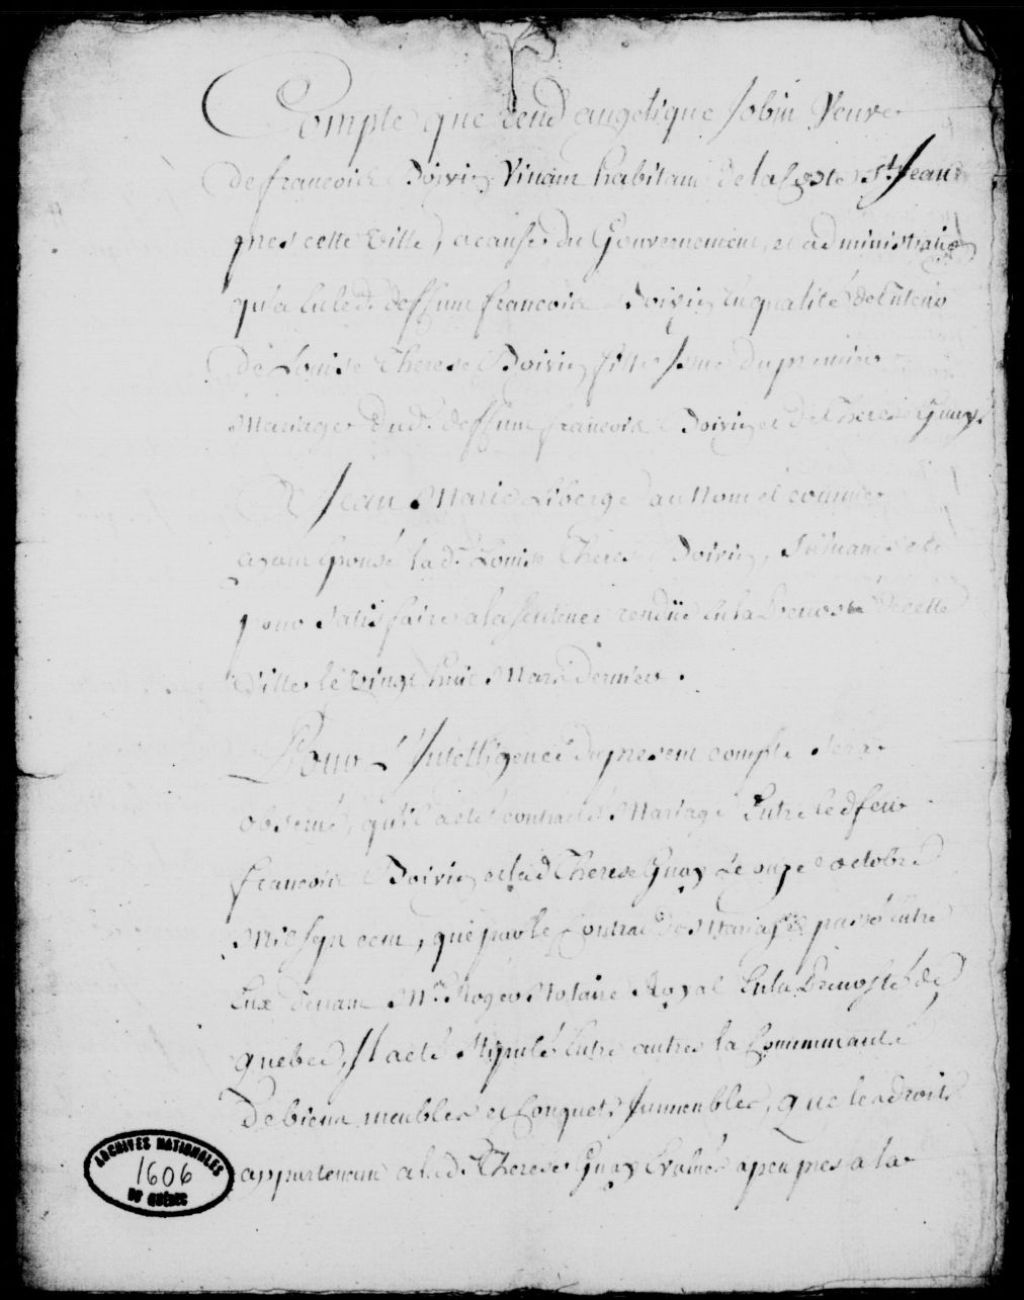 Compte que rend angelique Jobin Veuve
de francois Boivin Vivant habitant de la Coste St Jean
pres cette ville, a cause du Gouvernement, et administration
qu'a eu led. deffunt francois Boivin En qualité de tuteur
de Louise Therese Boivin fille Issue du premier
Mariage dud. deffunt francois Boivin et de Therese Guay.
A Jean Marie Liberge au Nom et comme
ayant Epousé lad. Louise Therese Boivin, Suivant et
pour satisfaire a la sentence rendüe En la Prevosté de cette
Ville le vingt huit Mars dernier.
Pour L'Intelligence du present compte sera
observé, qu'il a eté contracté Mariage Entre led feu
francois Boivin et lad Therese Guay Le onze octobre
Mil sept cent, que par le Contract de Mariage passé Entre
Eux devant Me. Roger Notaire Royal En la Prevosté de
quebec, Il a eté Stipulé Entre autres la Communauté
De biens meubles et Conquets Immeubles, que les droits
appartenant a lad. Therese Guay Evalués apeu pres a la
ARCHIVES NATIONALES
1606
DU QUÉBEC